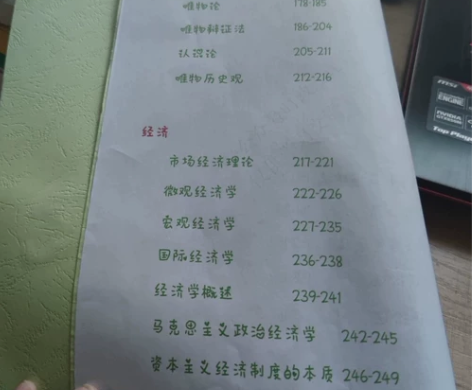 唯物论 178-185
唯物辩证法 186-204
认识论 205-211
唯物历史观 212-216
经济
市场经济理论 217-221
微观经济学 222-226
宏观经济学 227-235
国际经济学 236-238
经济学概述 239-241
马克思主义政治经济学 242-245
资本主义经济制度的本质 246-249
msi
ENGINE
NVIDIA